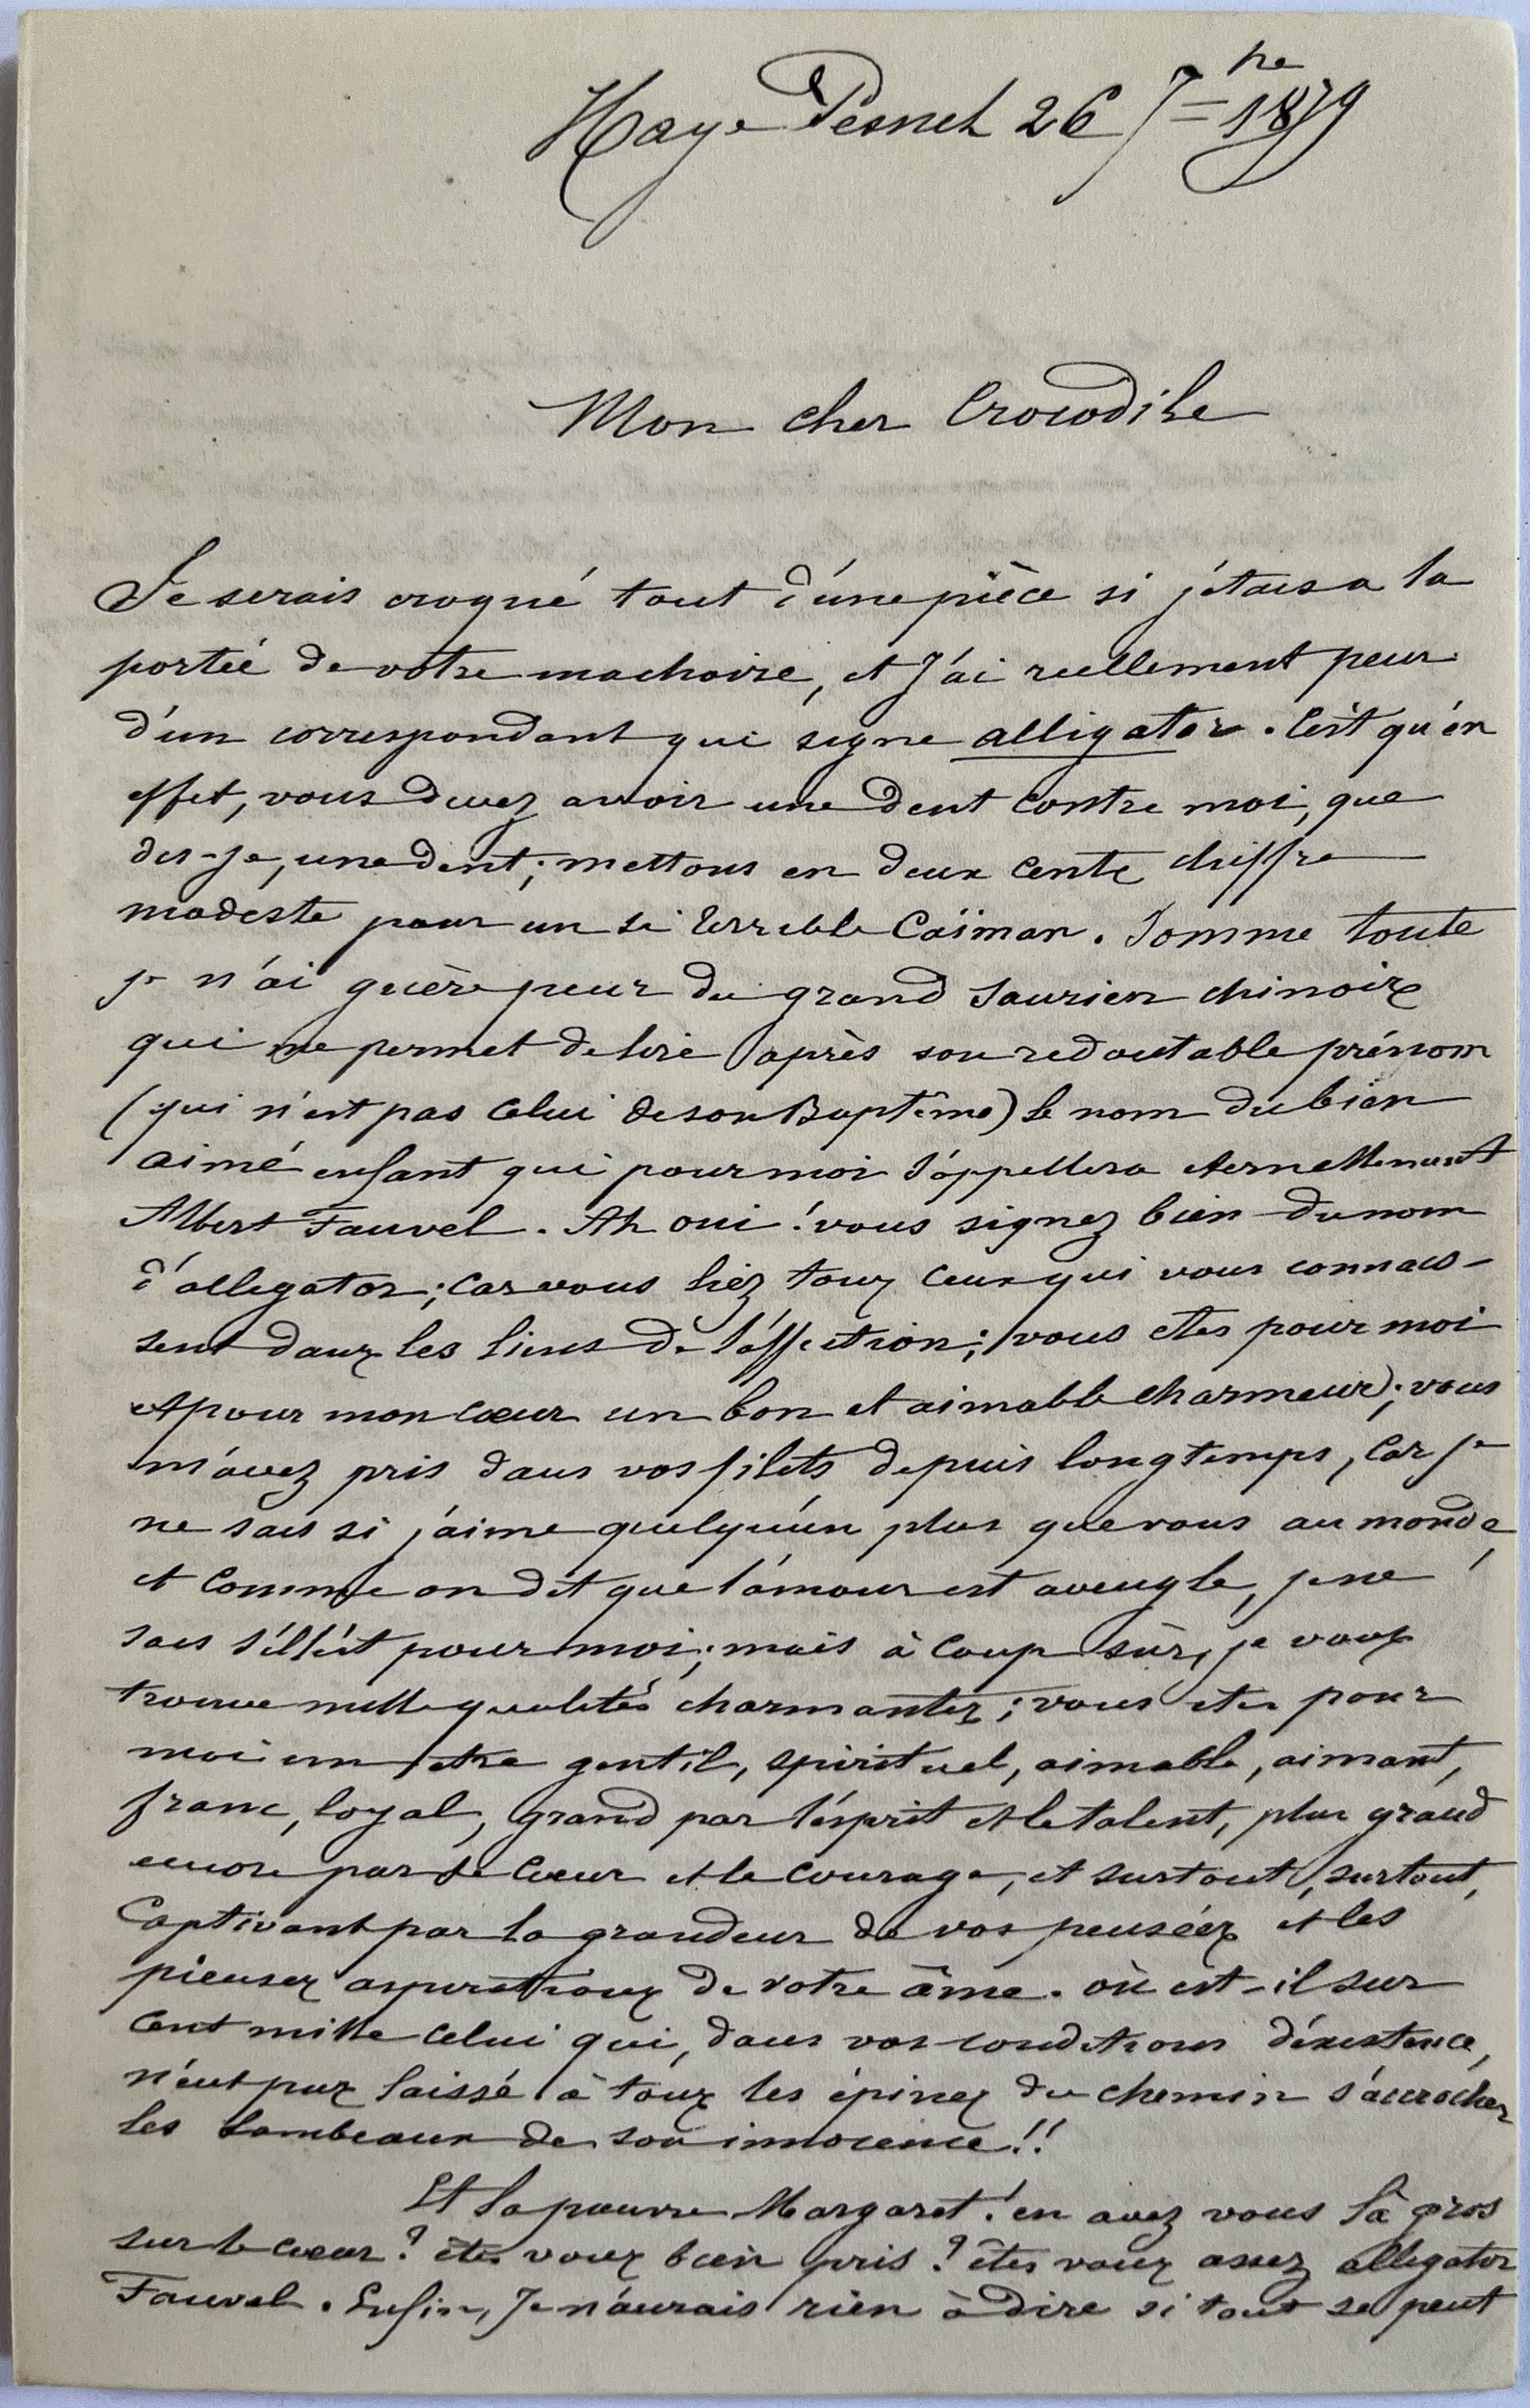 Haye Pesnel 26 7bre 1879
Mon cher Crocodile
Je serais croqué tout d'une pièce si j'étais a la
porteé de votre machoire, et J'ai reellement peur
d'un correspondant qui signe alligator. C'est qu'en
effet, vous devez avoir une dent contre moi, que
dis-je, une dent; mettons en deux cents chiffre
modeste pour un si terrible Caïman. Somme toute
je n'ai guère peur du grand Saurien chinois
qui me permet de lire après son redoutable prénom
(qui n'est pas celui de son Baptême) le nom du bien
aimé enfant qui pour moi s'appellera eternellement
Albert Fauvel. Ah oui! vous signez bien du nom
d'alligator; car vous liez tous ceux qui vous connais-
sent dans les liens de l'affection; vous etes pour moi
et pour mon cœur un bon et aimable charmeur; vous
m'avez pris dans vos filets depuis longtemps, car je
ne sais si j'aime quelqu'un plus que vous au monde,
et comme on dit que l'amour est aveugle, je ne
sais s'il l'est pour moi; mais à coup sûr, je vous
trouve mille qualités charmantes; vous etes pour
moi un etre gentil, spirituel, aimable, aimant,
franc, loyal, grand par l'esprit et le talent, plus grand
encore par le cœur et le courage, et surtout, surtout,
captivant par la grandeur de vos pensées et les
pieuses aspirations de votre âme. où est-il sur
cent mille celui qui, dans vos conditions d'existence,
n'eut pas laissé à tous les épines du chemin s'accrocher
les lambeaux de son innocence!!
Et la pauvre Margaret! en avez vous là gros
sur le cœur? êtes vous bien pris? êtes vous assez alligator
Fauvel. Enfin, Je n'aurais rien à dire si tout se peut